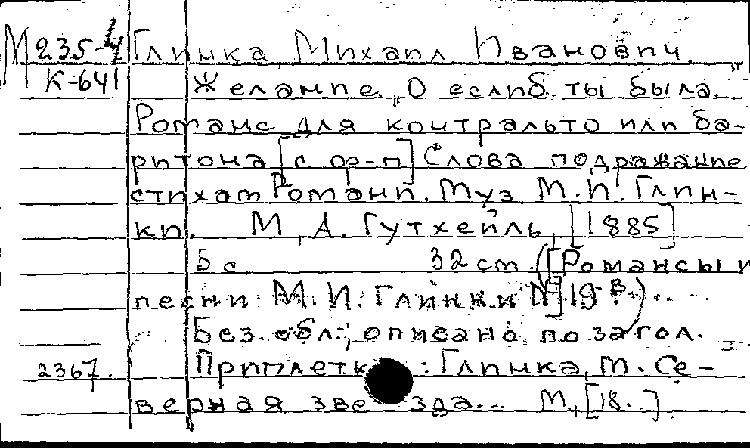 М 235-4 Глинка, Михаил Иванович.
К-641 Желание „О еслиб ты была"
Романс для контральто или ба-
ритона [с ф-п] Слова подражание
стихам Романи. Муз М.И. Глин-
ки. М, А. Гутхейль, [1885]
5 с 32 см. ([Романсы и
песни М. И. Глинки №] 19 )
Без обл.; описано по загол.
2367. Приплетк : Глинка, М. Се-
верная зве зда... М, [18. ]